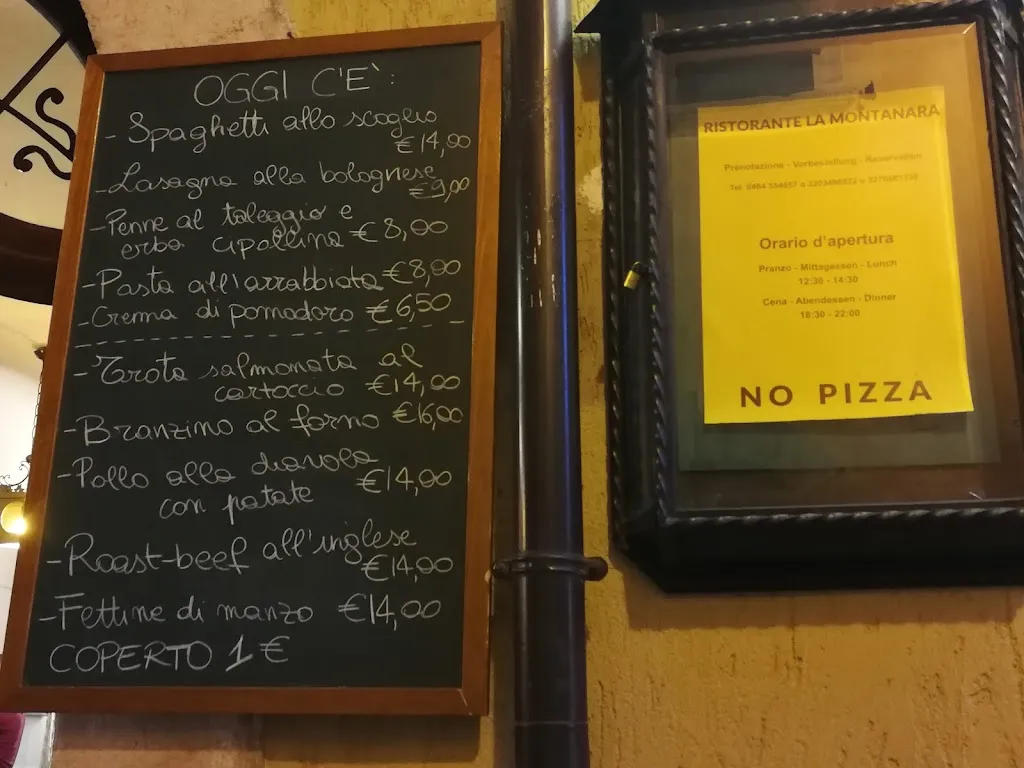 OGGI C'E`:
- Spaghetti allo scoglio
€14,00
- Lasagna alla bolognese
€9,00
- Penne al taleggio e
erba cipollina €8,00
- Pasta all'arrabbiata €8,00
- Crema di pomodoro €6,50
- Trota salmonata al
cartoccio €14,00
- Branzino al forno €16,00
- Pollo alla diavola
con patate €14,00
- Roast-beef all'inglese
€14,00
- Fettine di manzo €14,00
COPERTO 1€
RISTORANTE LA MONTANARA
Prenotazione - Vorbestellung - Reservation
Tel.
Orario d'apertura
Pranzo - Mittagessen - Lunch
12:30 - 14:30
Cena - Abendessen - Dinner
18:30 - 22:00
NO PIZZA